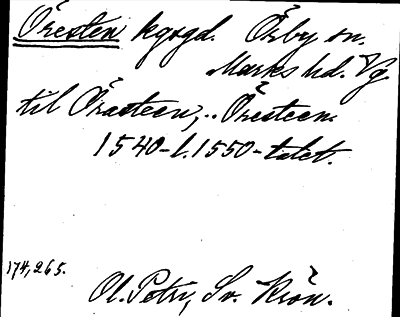 Öresten kgsgd. Örby sn.
Marks hd. Vg.
til Örasteen, .. Öresteen.
1540- l. 1550-talet.
174, 265.
Ol. Petri, Sv. Krön.